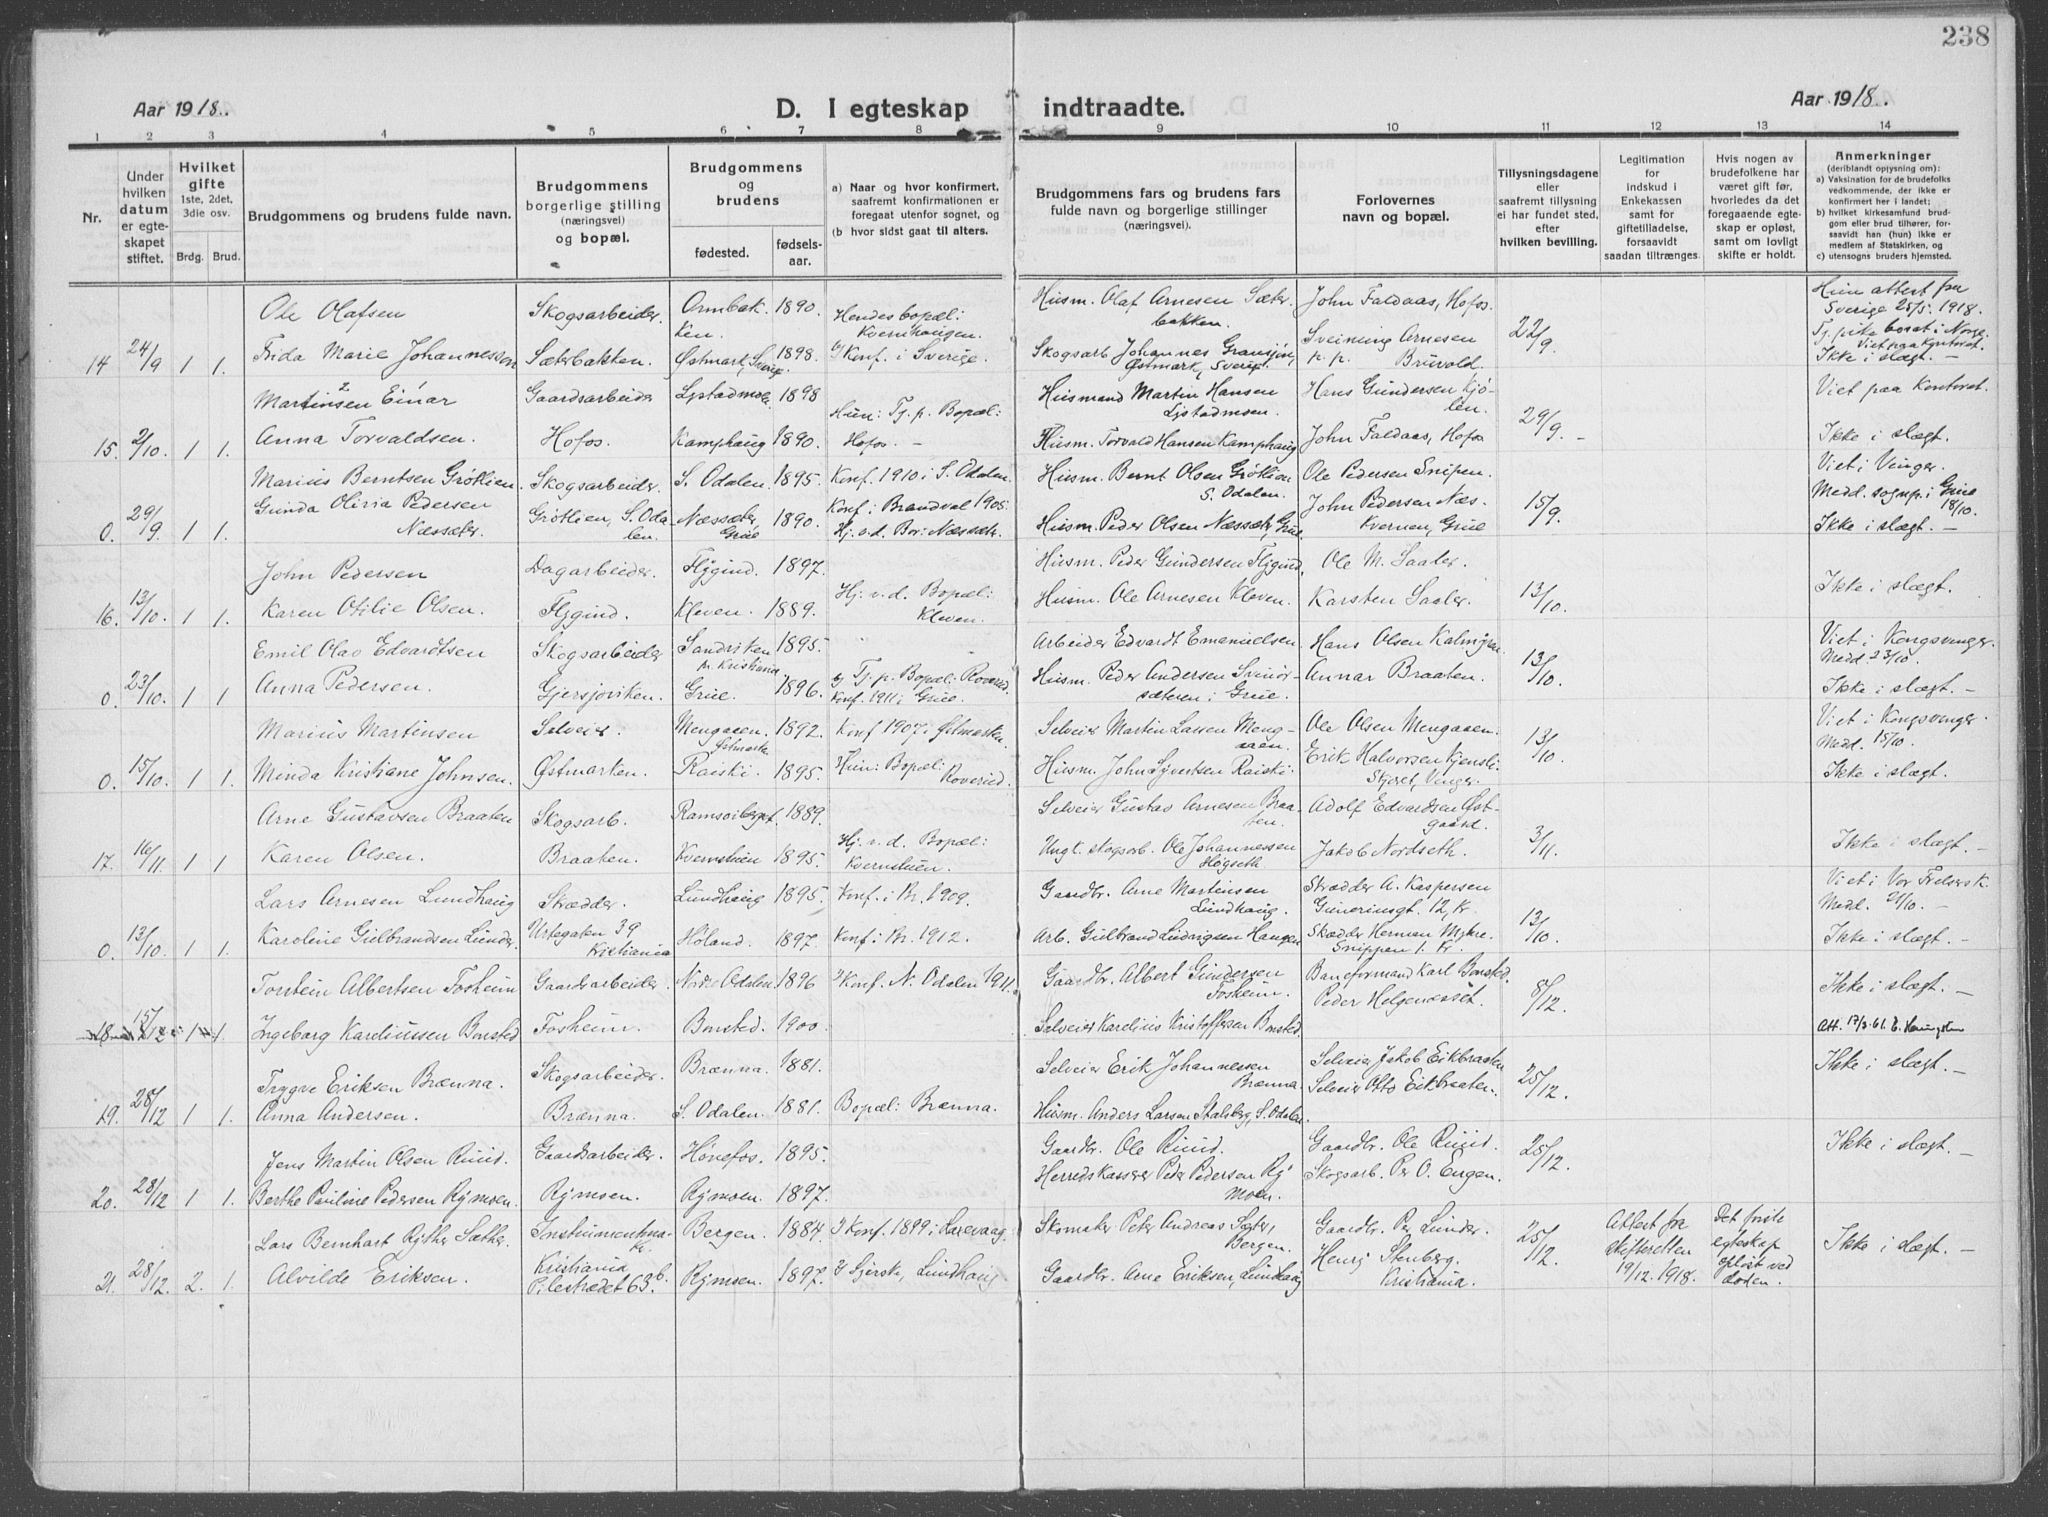 238
Aar 1918.
D. I egteskap indtraadte.
Aar 1918.
1 2 3 4 5 6 7 8 9 10 11 12 13 14
Nr.
Under hvilken datum er egteskapet stiftet.
Hvilket gifte 1ste, 2det, 3die osv.
Brdg. Brud.
Brudgommens og brudens fulde navn.
Brudgommens borgerlige stilling (næringsvei) og bopæl.
Brudgommens og brudens
fødested. fødsels-aar.
a) Naar og hvor konfirmert, saafremt konfirmationen er foregaat utenfor sognet, og
(b hvor sidst gaat til alters.
Brudgommens fars og brudens fars fulde navn og borgerlige stillinger (næringsvei).
Forlovernes navn og bopæl.
Tillysningsdagene eller saafremt tillysning ei har fundet sted, efter hvilken bevilling.
Legitimation for indskud i Enkekassen samt for giftetilladelse, forsaavidt saadan tiltrænges.
Hvis nogen av brudefolkene har været gift før, hvorledes da det foregaaende egteskap er opløst, samt om lovligt skifte er holdt.
Anmerkninger (deriblandt oplysning om):
a) Vaksination for de brudefolks vedkommende, der ikke er konfirmert her i landet;
b) hvilket kirkesamfund brudgom eller brud tilhører, forsaavidt han (hun) ikke er medlem av Statskirken, og
c) utensogns bruders hjemsted.
Ole Olafsen Skogsarbeider. Ormbakken. 1890. Hendes bopæl: Kvernhaugen. Husm. Olaf Arnesen Sæterbakken. John Faldaas, Hofos. Hun attest fra Sverige 25/5 1918.
14 24/9 1 1. Frida Marie Johannesson Sæterbakken. Østmark, Sverige 1898. Konf. i Sverige. Skogsarb. Johannes Gransjön, Østmark, Sverige. Sveining Arnesen p.p. Bruvold. 22/9. Tj. pike bosat i Norge. Viet paa Kontoret. Ikke i slægt. —
Martinsen Einar Gaardsarbeider Lystadmoen 1898 Hun: Tj. p. Bopæl: Husmand Martin Hansen Lystadmoen. Hans Gundersen Kjølen. Viet paa Kontoret.
15. 2/10. 1 1. Anna Torvaldsen. Hofos. Kamphaug 1890. Hofos. — Husm. Torvald Hansen Kamphaug John Faldaas, Hofos 29/9. — Ikke i slægt.
Marius Berntsen Grøtlien. Skogsarbeider. S. Odalen. 1895. Konf. 1910 i S. Odalen. Husm. Bernt Olsen Grøtlien S. Odalen. Ole Pedersen Snipen. Viet i Vinger.
0. 29/9 1 1. Gunda Olivia Pedersen Næssæter. Grøtlien, S. Odalen. Næssæter, Grue 1890. Konf. i Brandval 1905. Hj. v. d. Bor: Næssæter. Husm. Peder Olsen Næssæter, Grue. John Pedersen Næskvernen, Grue 15/9. Medd. sognep. i Grue 18/10. Ikke i slægt. —
John Pedersen Dagarbeider. Flygind. 1897. Husm. Peder Gundersen Flygind. Ole M. Saaler.
16. 13/10. 1 1. Karen Otilie Olsen. Flygind. Kleven. 1889. Hj. v. d. Bopæl: Kleven. Husm. Ole Arnesen Kleven. Karsten Saaler. 13/10. Ikke i slægt.
Emil Olav Edvardtsen Skogsarbeider Sandviken pr. Kristiania 1895. Arbeider Edvardt Emanuelsen Hans Olsen Kalmyren Viet i Kongsvinger. Medd. 23/10.
0. 23/10. 1 1 Anna Pedersen. Gjersjøviken. Grue. 1896. Tj. p. Bopæl: Roverud. Konf. 1911 i Grue. Husm. Peder Andersen i Grue. Annar Braaten. 13/10. Ikke i slægt. —
Marius Martinsen Selveier. Mengaaen. Østmarka 1892. Konf 1907 i Østmarken. Selveier Martin Larsen Mengaaen. Ole Olsen Mengaaen. Viet i Kongsvinger. Medd. 15/10.
0. 15/10. 1 1. Minda Kristiane Johnsen. Østmarken. Raiski. 1895. Hun: Bopæl: Roverud. Husm. John Syvertsen Raiski. Erik Halvorsen Kjensli Skjeret, Vinger. 13/10. Ikke i slægt.
Arne Gustavsen Braaten Skogsarb. Ramsoiberget. 1889. Selveier Gustav Arnesen Braaten. Adolf Edvardsen Østgaard.
17. 16/11. 1 1 Karen Olsen. Braaten. Kvernstuen 1895. Hj. v. d. Bopæl: Kvernstuen. Ungk. skogsarb. Ole Johannessen Høgseth Jakob Nordseth. 3/11. Ikke i slægt. —
Lars Arnesen Lundhaug Skrædder. Lundhaug 1895. Konf. i Br. 1909. Gaardbr. Arne Martinsen Lundhaug. Skrædder A. Kaspersen 12, Kr. Viet i Vor Frelsers K. Medd.
0. 13/10. 1 1. Karoline Gulbrandsen Lunder. Urtegaten 39 Kristiania Høland. 1897. Konf. i Br. 1912. Arb. Gulbrand Ludvigsen Haugen Skædder Herman Myhre. Snippen 1. Kr. 13/10. Ikke i slægt. —
Torstein Albertsen Fosheim Gaardsarbeider. Nordre Odalen. 1896 Konf. N. Odalen 1911. Gaardbr. Albert Gundersen Fosheim. Baneformand Karl Bonsted. Ikke i slægt. —
18. 15/12 1 1. Ingeborg Kareliussen Bonsted Fosheim. Bonsted. 1900. Selveier Karelius Kristoffersen Bonsted. Peder Helgenæsset. 8/12. Att. 17/3.61.
Trygve Eriksen Brænna. Skogsarbeider. Brænna. 1881. Selveier Erik Johannessen Brænna. Selveier Jakob Eikbraaten Ikke i slægt.
19. 28/12 1 1. Anna Andersen. Brænna. S. Odalen. 1881. Bopæl: Brænna. Husm. Anders Larsen Stalsberg, S. Odalen. Selveier Otto Eikbraaten. 25/12.
Jens Martin Olsen Ruud. Gaardsarbeider. Hønefos. 1895. Gaardbr. Ole Ruud. Gaardbr. Ole Ruud. Ikke i slægt.
20. 28/12 1 1. Berthe Pauline Pedersen Rymoen. Rymoen. Rymoen. 1897. Herredskasserer Peder Pedersen Rymoen. Skogsarb. Per O. Engen. 25/12.
Lars Bernhart Ryther Sæther. Instrumentmaker. Bergen. 1884. Konf. 1899 i Laxevaag. Skomaker Peter Andreas Sæter, Bergen. Gaardbr. Per Lunder. Attest fra skifteretten 19/12. 1918. Det første egteskap opløst ved døden. Ikke i slægt. —
21. 28/12. 2. 1. Alvilde Eriksen. Kristiania Pilestrædet 63b. Rymoen. 1897. Lundhaug Gaardbr. Arne Eriksen, Lundhaug Henry Stenberg. Kristiania. 25/12.